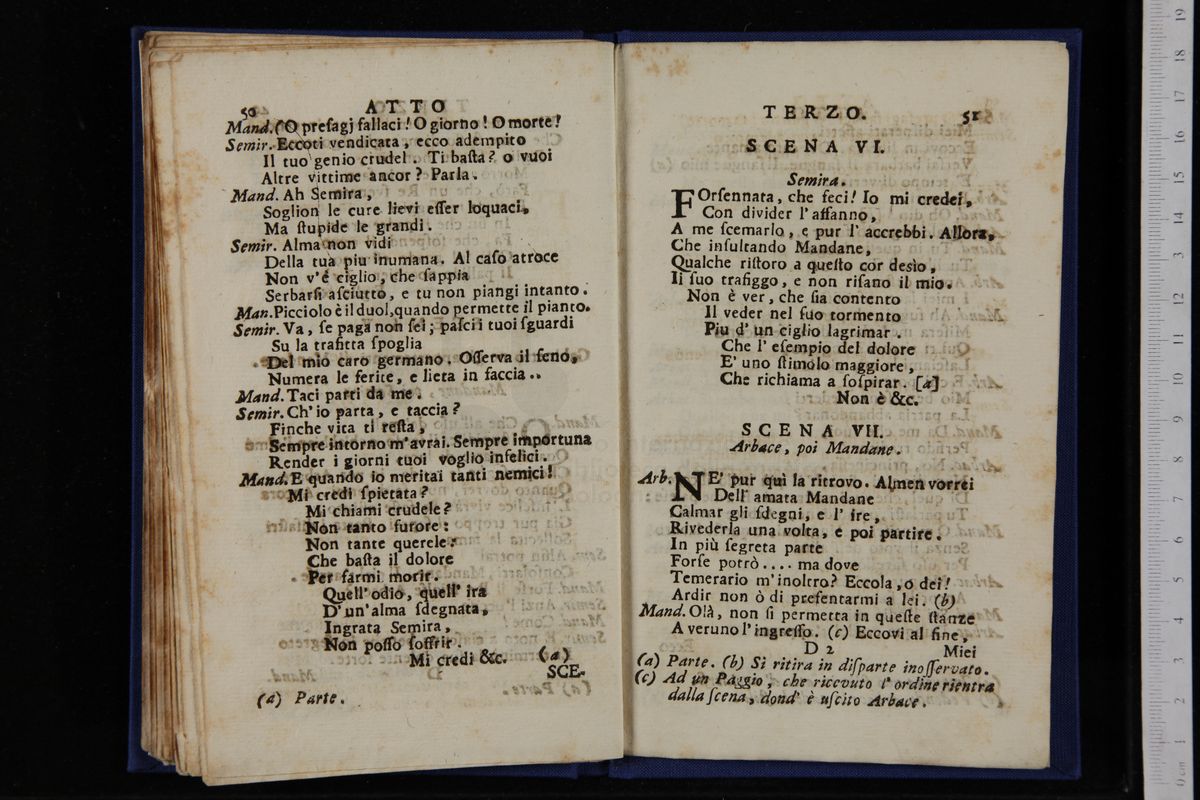 50 ATTO
Mand. (O presagj fallaci! O giorno! O morte!
Semir. Eccoti vendicata, ecco adempito
Il tuo genio crudel. Ti basta? o vuoi
Altre vittime ancor? Parla.
Mand. Ah Semira,
Soglion le cure lievi esser loquaci,
Ma stupide le grandi.
Semir. Alma non vidi
Della tua piu inumana. Al caso atroce
Non v'é ciglio, che sappia
Serbarsi asciutto, e tu non piangi intanto.
Man. Picciolo è il duol, quando permette il pianto.
Semir. Va, se paga non sei; pasci i tuoi sguardi
Su la trafitta spoglia
Del mio caro germano. Osserva il seno,
Numera le ferite, e lieta in faccia..
Mand. Taci parti da me.
Semir. Ch'io parta, e taccia?
Finche vita ti resta,
Sempre intorno m'avrai. Sempre importuna
Render i giorni tuoi voglio infelici.
Mand. E quando io meritai tanti nemici!
Mi credi spietata?
Mi chiami crudele?
Non tanto furore:
Non tante querele:
Che basta il dolore
Per farmi morir.
Quell' odio, quell' ira
D'un'alma sdegnata,
Ingrata Semira,
Non posso soffrir.
Mi credi &c. (a)
SCE-
(a) Parte.
TERZO. 51
SCENA VI.
Semira.
FOrsennata, che feci! Io mi credei,
Con divider l'affanno,
A me scemarlo, e pur l' accrebbi. Allora,
Che insultando Mandane,
Qualche ristoro a questo cor desìo,
Il suo trafiggo, e non risano il mio.
Non è ver, che sia contento
Il veder nel suo tormento
Piu d' un ciglio lagrimar.
Che l' esempio del dolore
E' uno stimolo maggiore,
Che richiama a sospirar. [a]
Non è &c.
SCENA VII.
Arbace, poi Mandane.
Arb. NE' pur quì la ritrovo. Almen vorrei
Dell' amata Mandane
Calmar gli sdegni, e l' ire,
Rivederla una volta, e poi partire.
In più segreta parte
Forse potrò.... ma dove
Temerario m'inoltro? Eccola, o dei!
Ardir non ò di presentarmi a lei. (b)
Mand. Olà, non si permetta in queste stanze
A veruno l'ingresso. (c) Eccovi al fine,
D 2 Miei
(a) Parte. (b) Si ritira in disparte inosservato.
(c) Ad un Paggio, che ricevuto l' ordine rientra
dalla scena, dond' è uscito Arbace.